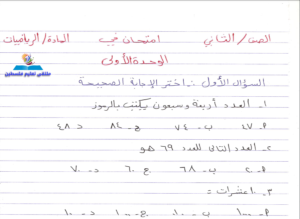 الصف/الثاني امتحان في المادة/الرياضيات
الوحدة الأولى
ملتقى تعليم فلسطين
السؤال الأول :- اختر الإجابة الصحيحة
١- العدد أربعة وسبعون يكتب بالرموز
٤٧ ب- ٧٤ ج- ٨٤ د- ٤٨
٢- العدد التالي للعدد ٦٩ هو
ب- ٦٨ ج- ٦٠ د- ٧٠
٣- ١٠ عشرات =